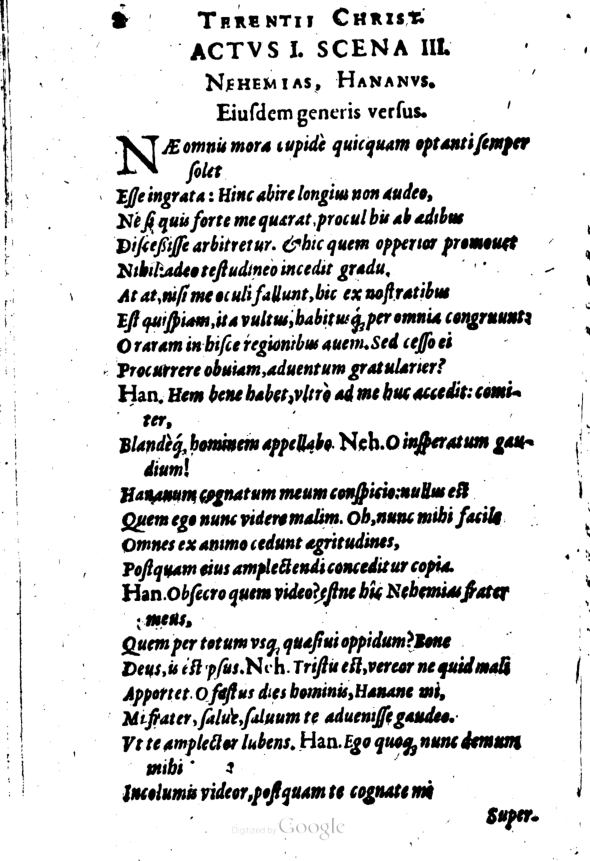 TERENTII CHRIST.
ACTVS I. SCENA III.
NEHEMIAS, HANANVS.
Eiuſdem generis verſus.
NÆ omnis mora cupidè quicquam optanti ſemper
ſolet
Eſſe ingrata: Hinc abire longius non audeo,
Ne ſi quis forte me quærat, procul his ab ædibus
Diſceßiſſe arbitretur. & hic quem opperior promouet
Nihil: adeo teſtudineo incedit gradu,
At at, niſi me oculi fallunt, hic ex noſtratibus
Eſt quiſpiam, ita vultus, habitusq́; per omnia congruunt:
O raram in hiſce regionibus auem. Sed ceſſo ei
Procurrere obuiam, aduentum gratularier?
Han. Hem bene habet, vltrò ad me huc accedit: comi-
ter,
Blandèq́; hominem appellabo. Neh. O inſperatum gau-
dium!
Hananum cognatum meum conſpicio: nullus eſt
Quem ego nunc videre malim. Oh, nunc mihi facilè
Omnes ex animo cedunt ægritudines,
Poſtquam eius amplectendi conceditur copia.
Han. Obſecro quem video? eſtne hîc Nehemias frater
meus,
Quem per totum vsq; quæſiui oppidum? Bone
Deus, is eſt ipſus. Neh. Triſtis eſt, vereor ne quid mali
Apportet. O feſtus dies hominis, Hanane mi,
Mi frater, ſalue, ſaluum te adueniſſe gaudeo.
Vt te amplector lubens. Han. Ego quoq; nunc demum
mihi
Incolumis videor, poſtquam te cognate mi
Super-
Digitized by Google